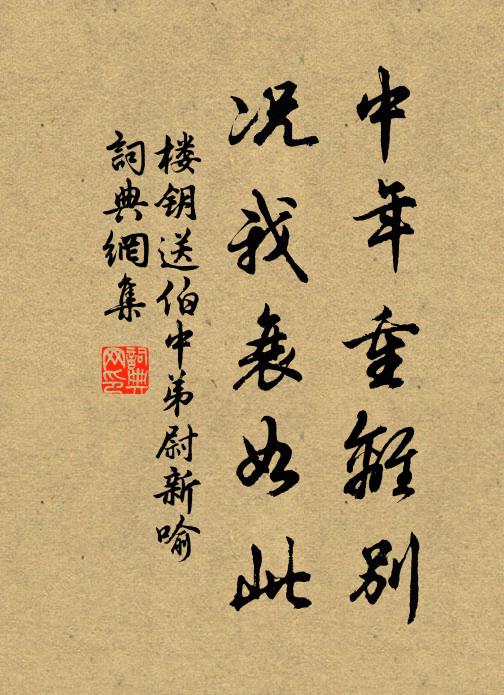 中年重離别
况我衰如此
楼钥送伯中弟尉新喻
詞典網集
詞典
网印